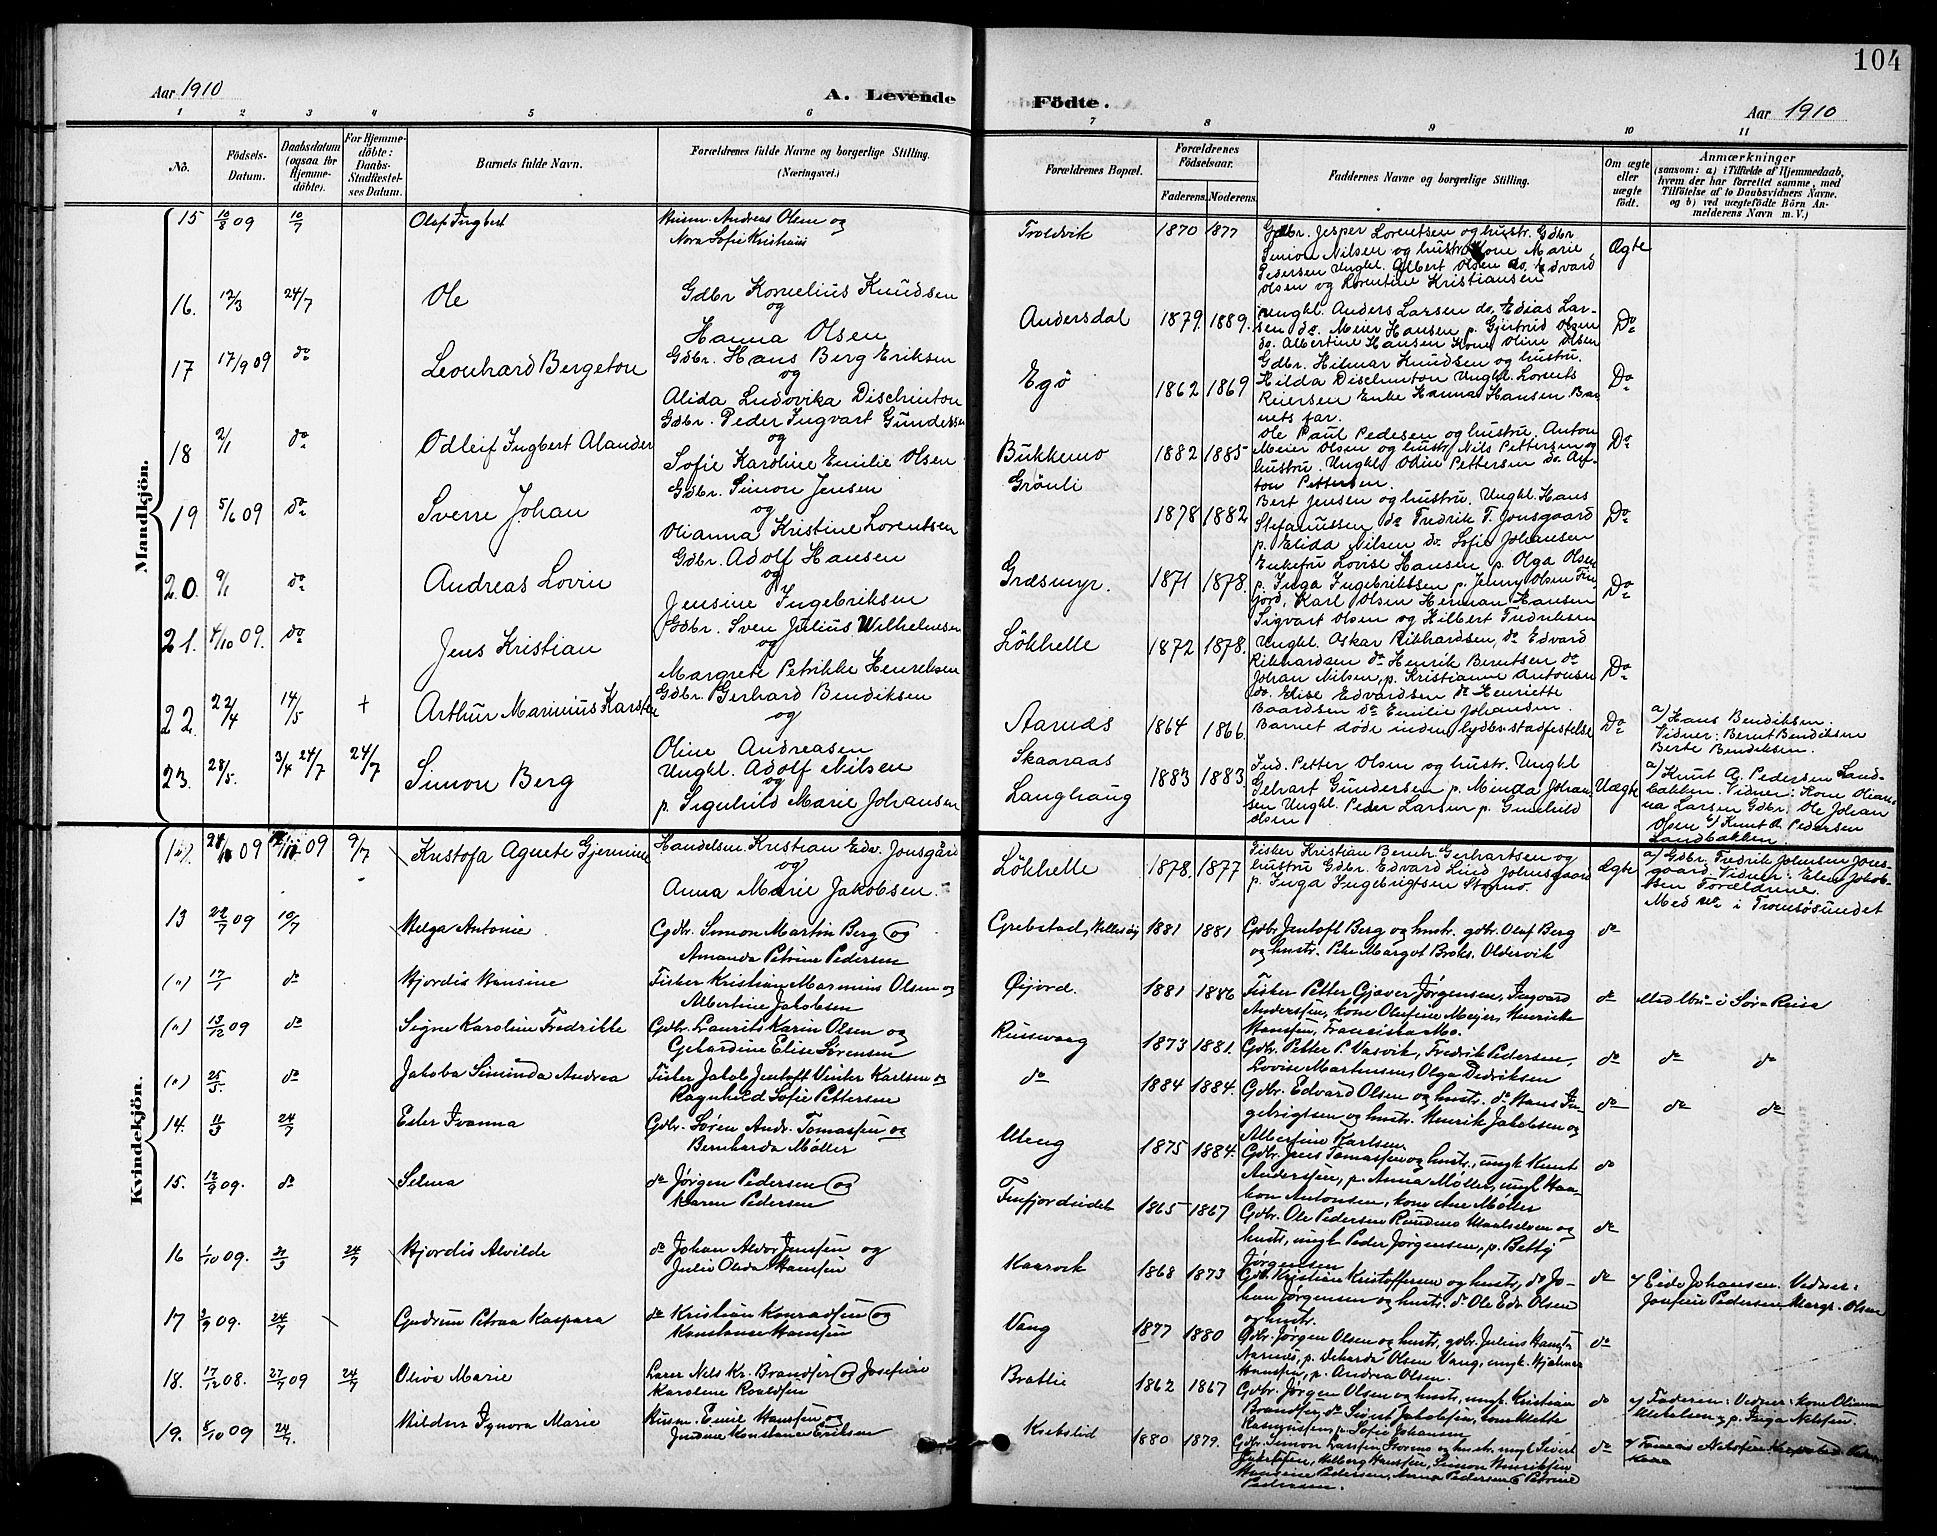 104
Aar 1910
A. Levende
Födte.
Aar 1910
1 2 3 4 5 6 7 8 9 10 11
No.
Födsels-
Datum.
Daabsdatum
(ogsaa for
Hjemme-
döbte).
For Hjemme-
döbte:
Daabs-
Stadfæstel-
ses Datum.
Barnets fulde Navn.
Forældrenes fulde Navne og borgerlige Stilling.
(Næringsvei.)
Forældrenes Bopæl.
Forældrenes
Födselsaar.
Faderens. Moderens.
Faddernes Navne og borgerlige Stilling.
Om ægte
eller
uægte
födt.
Anmærkninger
(saasom: a) i Tilfælde af Hjemmedaab,
hvem der har forrettet samme, med
Tilföielse af to Daabsvidners Navne,
og b) ved uægtefödte Börn An-
melderens Navn m. V.)
Mandkjön.
15 10/8 09 10/7 Olaf Ingbert Husm. Andreas Olsen og
Nora Sofie Kristians
Troldvik 1870 1877 Gdbr. Jesper Lorentsen og hustr. Gdbr
Simon Nilsen og hustru Kone Marie
Pedersen Ungkl. Albert Olsen do, Edvard
Olsen og Lorentine Kristiansen
Ægte
16. 12/3 24/7 Ole Gdbr Kornelius Knudsen
og
Hanna Olsen
Andersdal 1879. 1889. Ungkl. Anders Larsen do, Edias Lar-
sen do. Meier Hansen p. Gjertrud Olsen
do. Albertine Hansen Kone Oline Olsen
Do
17 17/9 09 do Leonhard Bergeton Gdbr. Hans Berg Eriksen
og
Alida Ludovika Dischinton
Egö 1862 1869 Gdbr. Hilmar Knudsen og hustru.
Hilda Dischinton Ungkl. Lorents
Reiersen Enke Hanna Hansen Bar
nets far.
Do
18 2/1 do Odleif Ingbert Alander Gdbr. Peder Ingvart Gundersen
og
Sofie Karoline Emilie Olsen
Bukkemo 1882 1885 Ole Paul Pedesen og hustru, Anton
Meier Olsen og hustr, Nils Pettersen og
hustru. Ungkl. Odin Pettersen do. An-
ton Pettersen.
Do
19 5/6 09 do Sverre Johan Gdbr. Simon Jensen
og
Olianna Kristine Lorentsen
Grönli 1878 1882 Bert Jensen og hustru. Ungkl. Hans
Stefanussen do Fredrik T. Jonsgaard
p. Elida Nilsen do. Sofie Johansen
Do
20. 9/1 do Andreas Lovin Gdbr. Adolf Hansen
og
Jensine Ingebriksen
Græsmyr. 1871 1878. Enkefru Lovise Hansen p. Olga Olsen
p. Inga Ingebriktsen p. Jenny Olsen Fin-
fjord, Karl Olsen Herman Hansen
Sigvart Olsen og Hilbert Fredriksen
Do
21. 4/10 09. do Jens Kristian Gdbr. Sven Julius Wilhelmsen
og
Margrete Petrikke Henriksen
Lökhelle 1872 1878. Ungkl. Oskar Rikhardsen, do Edvard
Rikhardsen do Henrik Berntsen do
Johan Nilsen, p. Kristianne Antonsen
do. Elise Edvardsen do Henriette
Baardsen do Emilie Johansen.
Do
22. 22/4 14/5 + Arthur Marinius Karsten Gdbr. Gerhard Bendiksen
og
Oline Andreasen
Aarnäs 1864 1866. Barnet döde inden lydbn. stadfestelse Do
a) Hans Bendiksen.
Vidner: Bernt Bendiksen
Berte Bendiksen.
23. 28/5. 3/4 24/7 24/7 Simon Berg Ungkl. Adolf Nilsen
og
p. Signhild Marie Johansen
Skaaraas
Langhaug
1883 1883. Ind. Petter Olsen og hustr. Ungkl
Gelvart Gundersen p. Minda Johan-
sen Ungkl. Peder Larsen p. Gunhild
Olsen
Uægte
a) Knut A. Pedersen Land-
bakken. Vidner: Kone Olian-
na Larsen Gdbr. Ole Johan
Olsen b) Knut A. Pedersen
Landbakken.
Kvindekjön.
09 09 9/7 Kristofa Agnete Gjermine Handelsm. Kristian Edv. Jonsgård
og
Anna Marie Jakobsen.
Lökhelle 1878. 1877 Fisker Kristian Bernh. Gerhartsen og
hustru Gdbr. Edvard Lind Johnsgaard
p. Inga Ingebrigtsen Stormo.
Ægte
a) Gdbr. Fredrik Johnsen Jons-
gaard. Vidner: Elen Jakob-
sen Forældrene.
Med no i Tromsösundet
13 09 10/7 Helga Antonie Gdbr. Simon Martin Berg og
Amanda Petrine Pedersen
Grebstad, 1881 1881 Gdbr Jentoft Berg og hustr. gdbr. Olaf Berg
og hustr. Margot Oldervik
do
(") 17/1 do Hjordis Hansine Fisker Kristian Marinius Olsen og
Albertine Jakobsen
Öijord. 1881 1886 Fisker Petter Gjæver Jörgensen, Ingvard
Anderssen, kone Olufine Meijer, Henriette
Hanssen, Franciska Mo.
do Med i Sörreisa
(") 13/12 09 do Signe Karoline Fredrikke Gdbr. Laurits Karin Olsen og
Gerhardine Elise Sörensen
Russevaag 1873 1881. Gdbr. Petter P. Vasvik, Fredrik Pedersen,
Lovise Martinsen, Olga Dedriksen
do do do
(") 25/5. do Jakoba Siminda Andrea Fisker Jakob Jentoft Vinter Karlsen og
Ragnhild Sofie Pettersen
do 1884 1884. Gdbr. Edvard Olsen og hustr. do Hans In-
gebrigtsen og hustr. Henrik Jakobsen og
Albertine Karlsen.
do do do
14. 11/3 24/7 Ester Ivanna Gdbr. Sören Andr. Tomassen og
Bernharda Möller
Meng 1875 1884. Gdbr. Jens Tomassen og hustr., ungk Knut
Anderssen, p. Anna Möller, ungk. Haa-
kon Antonsen, kone Ane Möller
do
15. 12/9 09. do Selma do Jörgen Pedersen og
Karen Pedersen
Finfjordeidet 1865 1867 Gdbr. Ole Pedersen Rundmo Maalselven og
hustr, ungk Peder Jörgensen, p. Betty
Jörgensen
do
16 1/10 09. 21/3 24/7 Hjordis Alvilde do Johan Aldor Jenssen og
Julie Olida Hanssen
Kaarvik 1868 1873 Gdb. Kristian Kristoffersen og hustr., do Jo-
han Jörgensen og hustr. do Ole Edv. Olsen
og hustr.
do a) Eide Johansen. Vedner:
Josefine Pedersen, Margr. Olsen
17 2/9 09. 24/7 Gudrun Petraa Kaspara do Kristian Konradsen og
Konstanse Hanssen
Vang 1877 1880 Gdbr. Jörgen Olsen og hustr, gdbr. Julius Hanss
Aarnäs, p. Olsen Vang, ungk. Hjalmar
Hanssen, p. Andrea Olsen.
do
18. 17/12 08. 27/7 09 24/7 Oliva Marie Lærer Nils Kr. Brandser og Josefine
Karoline Roaldsen
Bratlie 1862 1867 Gdbr. Jörgen Olsen og hustr., ungk. Kristian
Brandsen do Sigurd Jakobsen, kone Mette
Rasmussen, p. Sofie Johansen
do a) Faderen: Vedner: Kone Olianna
Mikalsen, p. Inga Nilssen.
19. 8/10 09 24/7. Hildur Ignora Marie Husm. Emil Hanssen og
Konstanse Eriksen
Krebslid 1880 1879. Gdbr. Simon Larssen Stormo og hustr, ungk Sivert
Jakobsen, Helberg Hanssen, Simon Henriksen
Hansine Pedersen, Anna Pedersen og Petrine
Pedersen.
do